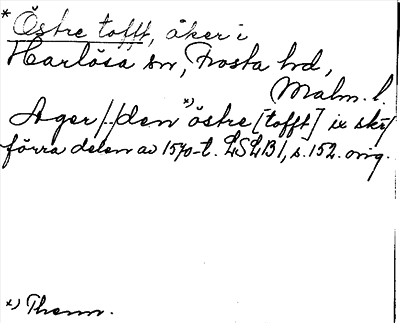 * Östre tofft, åker i
Harlösa sn, Frosta hd,
Malm. l.
Ager /../ den x) östre [tofft] ix skr/
förra delen av 1570-t. LSLB 1, s. 152. orig.
x) Thenn.